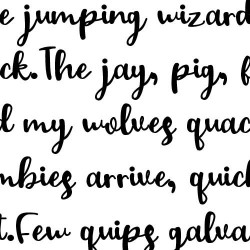 e jumping wizard
ck.The jay, pig, f
d my wolves quac
mbies arrive, quic
t.Few quips galva